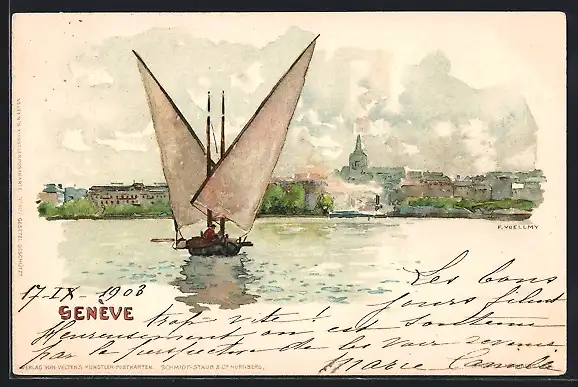 VELTEN'S KÜNSTLERPOSTKARTE
GESETZL. GESCHÜTZT
F. VOELLMY
17-IX-1903
GENÈVE
Les bons
jours filent
trop vite!
Heureusement on est soutenu
par la perspective de les voir revenir
Marie Camille
VERLAG VON VELTENS KÜNSTLER-POSTKARTEN. SCHMIDT-STAUB & Cº NÜRNBERG.